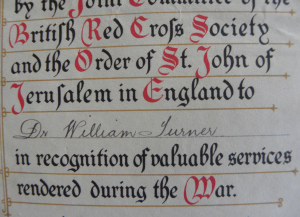 by the Joint Committee of the
British Red Cross Society
and the Order of St. John of
Jerusalem in England to
Dr William Turner
in recognition of valuable services
rendered during the War.